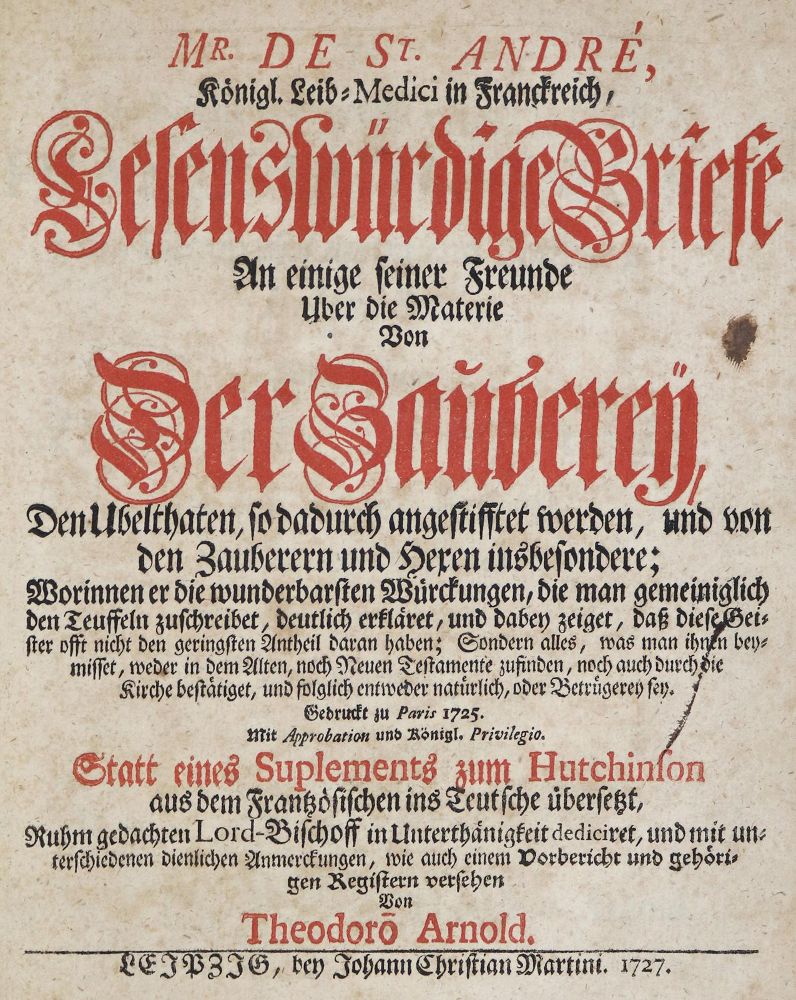 MR. DE ST. ANDRÉ,
Königl. Leib-Medici in Franckreich,
Lesenswürdige Briefe
An einige seiner Freunde
Uber die Materie
Von
Der Zauberey,
Den Ubelthaten, so dadurch angestifftet werden, und von
den Zauberern und Hexen insbesondere;
Worinnen er die wunderbarsten Würckungen, die man gemeiniglich
den Teuffeln zuschreibet, deutlich erkläret, und dabey zeiget, daß diese Gei-
ster offt nicht den geringsten Antheil daran haben; Sondern alles, was man ihnen bey-
misset, weder in dem Alten, noch Neuen Testamente zufinden, noch auch durch die
Kirche bestätiget, und folglich entweder natürlich, oder Betrügerey sey.
Gedruckt zu Paris 1725.
Mit Approbation und Königl. Privilegio.
Statt eines Suplements zum Hutchinson
aus dem Frantzösischen ins Teutsche übersetzt,
Ruhm gedachten Lord-Bischoff in Unterthänigkeit dediciret, und mit un-
terschiedenen dienlichen Anmerckungen, wie auch einem Vorbericht und gehöri-
gen Registern versehen
Von
Theodorō Arnold.
LEIPZIG, bey Johann Christian Martini. 1727.